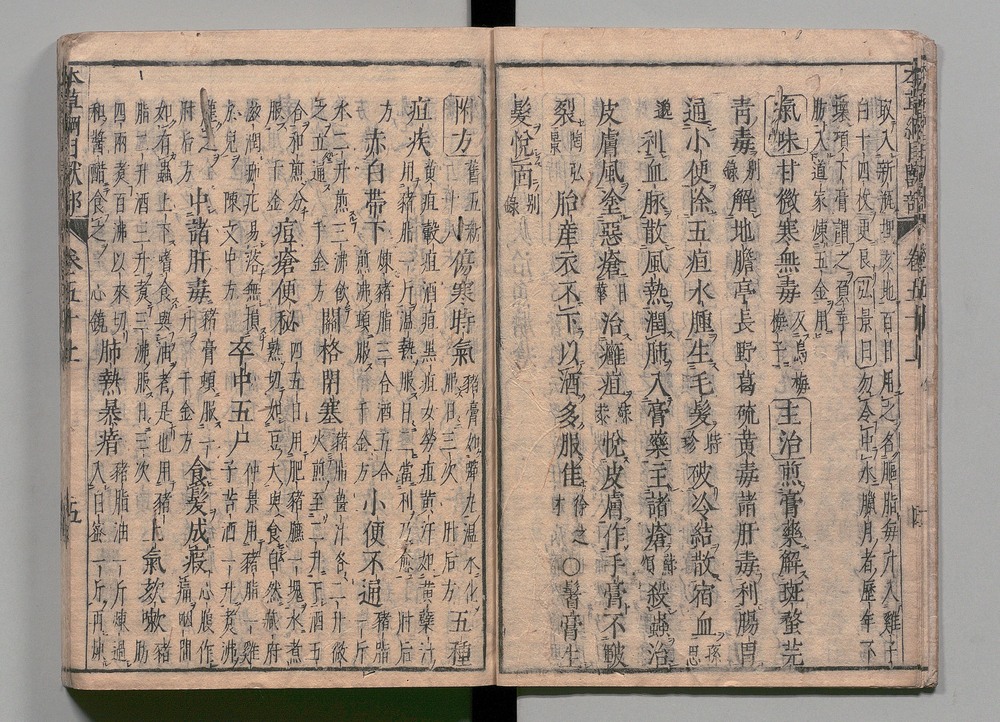 取入新瓶埋亥地百日用之名膒脂每升入雞子
白十四枚更良弘景曰勿令中水臘月者歷年不
壞項下膏謂之負革
肪入道家煉五金用
氣味甘微寒無毒反烏梅梔子主治煎膏藥解斑蝥芫
青毒別錄解地膽亭長野葛硫黃毒諸肝毒利腸胃
通小便除五疸水腫生毛髮時珍破冷結散宿血孫思
邈利血脉散風熱潤肺入膏藥主諸瘡蘇頌殺蟲治
皮膚風塗惡瘡日華治癰疽蘇恭悅皮膚作手膏不皸
裂陶弘景胎產衣不下以酒多服佳徐之才○鬐膏生
髮悅面別錄
附方舊五新二十八傷寒時氣豬膏如彈丸溫水化服日三次肘后方五種
疸疾黃疸穀疸酒疸黑疸女勞疸黃汗如黃蘗汁用豬脂一斤溫熱服日三當利乃愈肘后
方赤白帶下煉豬脂三合酒五合煎沸頓服千金方小便不通豬脂一斤
水二升煎三沸飲之立通千金方關格閉塞豬脂薑汁各二升微火煎至二升下酒五
合和煎分服千金痘瘡便秘四五日用肥豬膘一塊水煮熟切如豆大與食自然臟府
滋潤痂疕易落無損於兒陳文中方卒中五尸仲景用豬脂一雞子苦酒一升煮沸
灌之肘后方中諸肝毒豬膏頓服一升千金方食髮成瘕心腹作痛咽間
如有蟲上下嗜食與油者是也用豬脂二升酒三升煮三沸服日三次上氣欬嗽豬肪
四兩煮百沸以來切和醬醋食之心鏡肺熱暴瘖豬脂油一斤煉過入白蜜一斤再煉